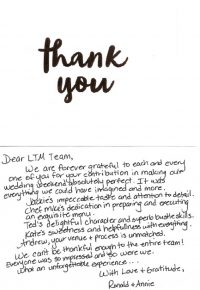 thank
you
Dear LTM Team,
We are forever grateful to each and every
one of you for your contribution in making our
wedding weekend absolutely perfect. It was
everything we could have imagined and more.
Jackie's impeccable taste and attention to detail.
Chef Mike's dedication in preparing and executing
an exquisite menu.
Ted's delightful character and superb bustle skills.
Kate's sweetness and helpfulness with everything.
Andrew, your venue & process is unmatched.
We can't be thankful enough to the entire team!
Everyone was so impressed and so were we.
What an unforgettable experience...
With Love & Gratitude,
Ronald & Annie